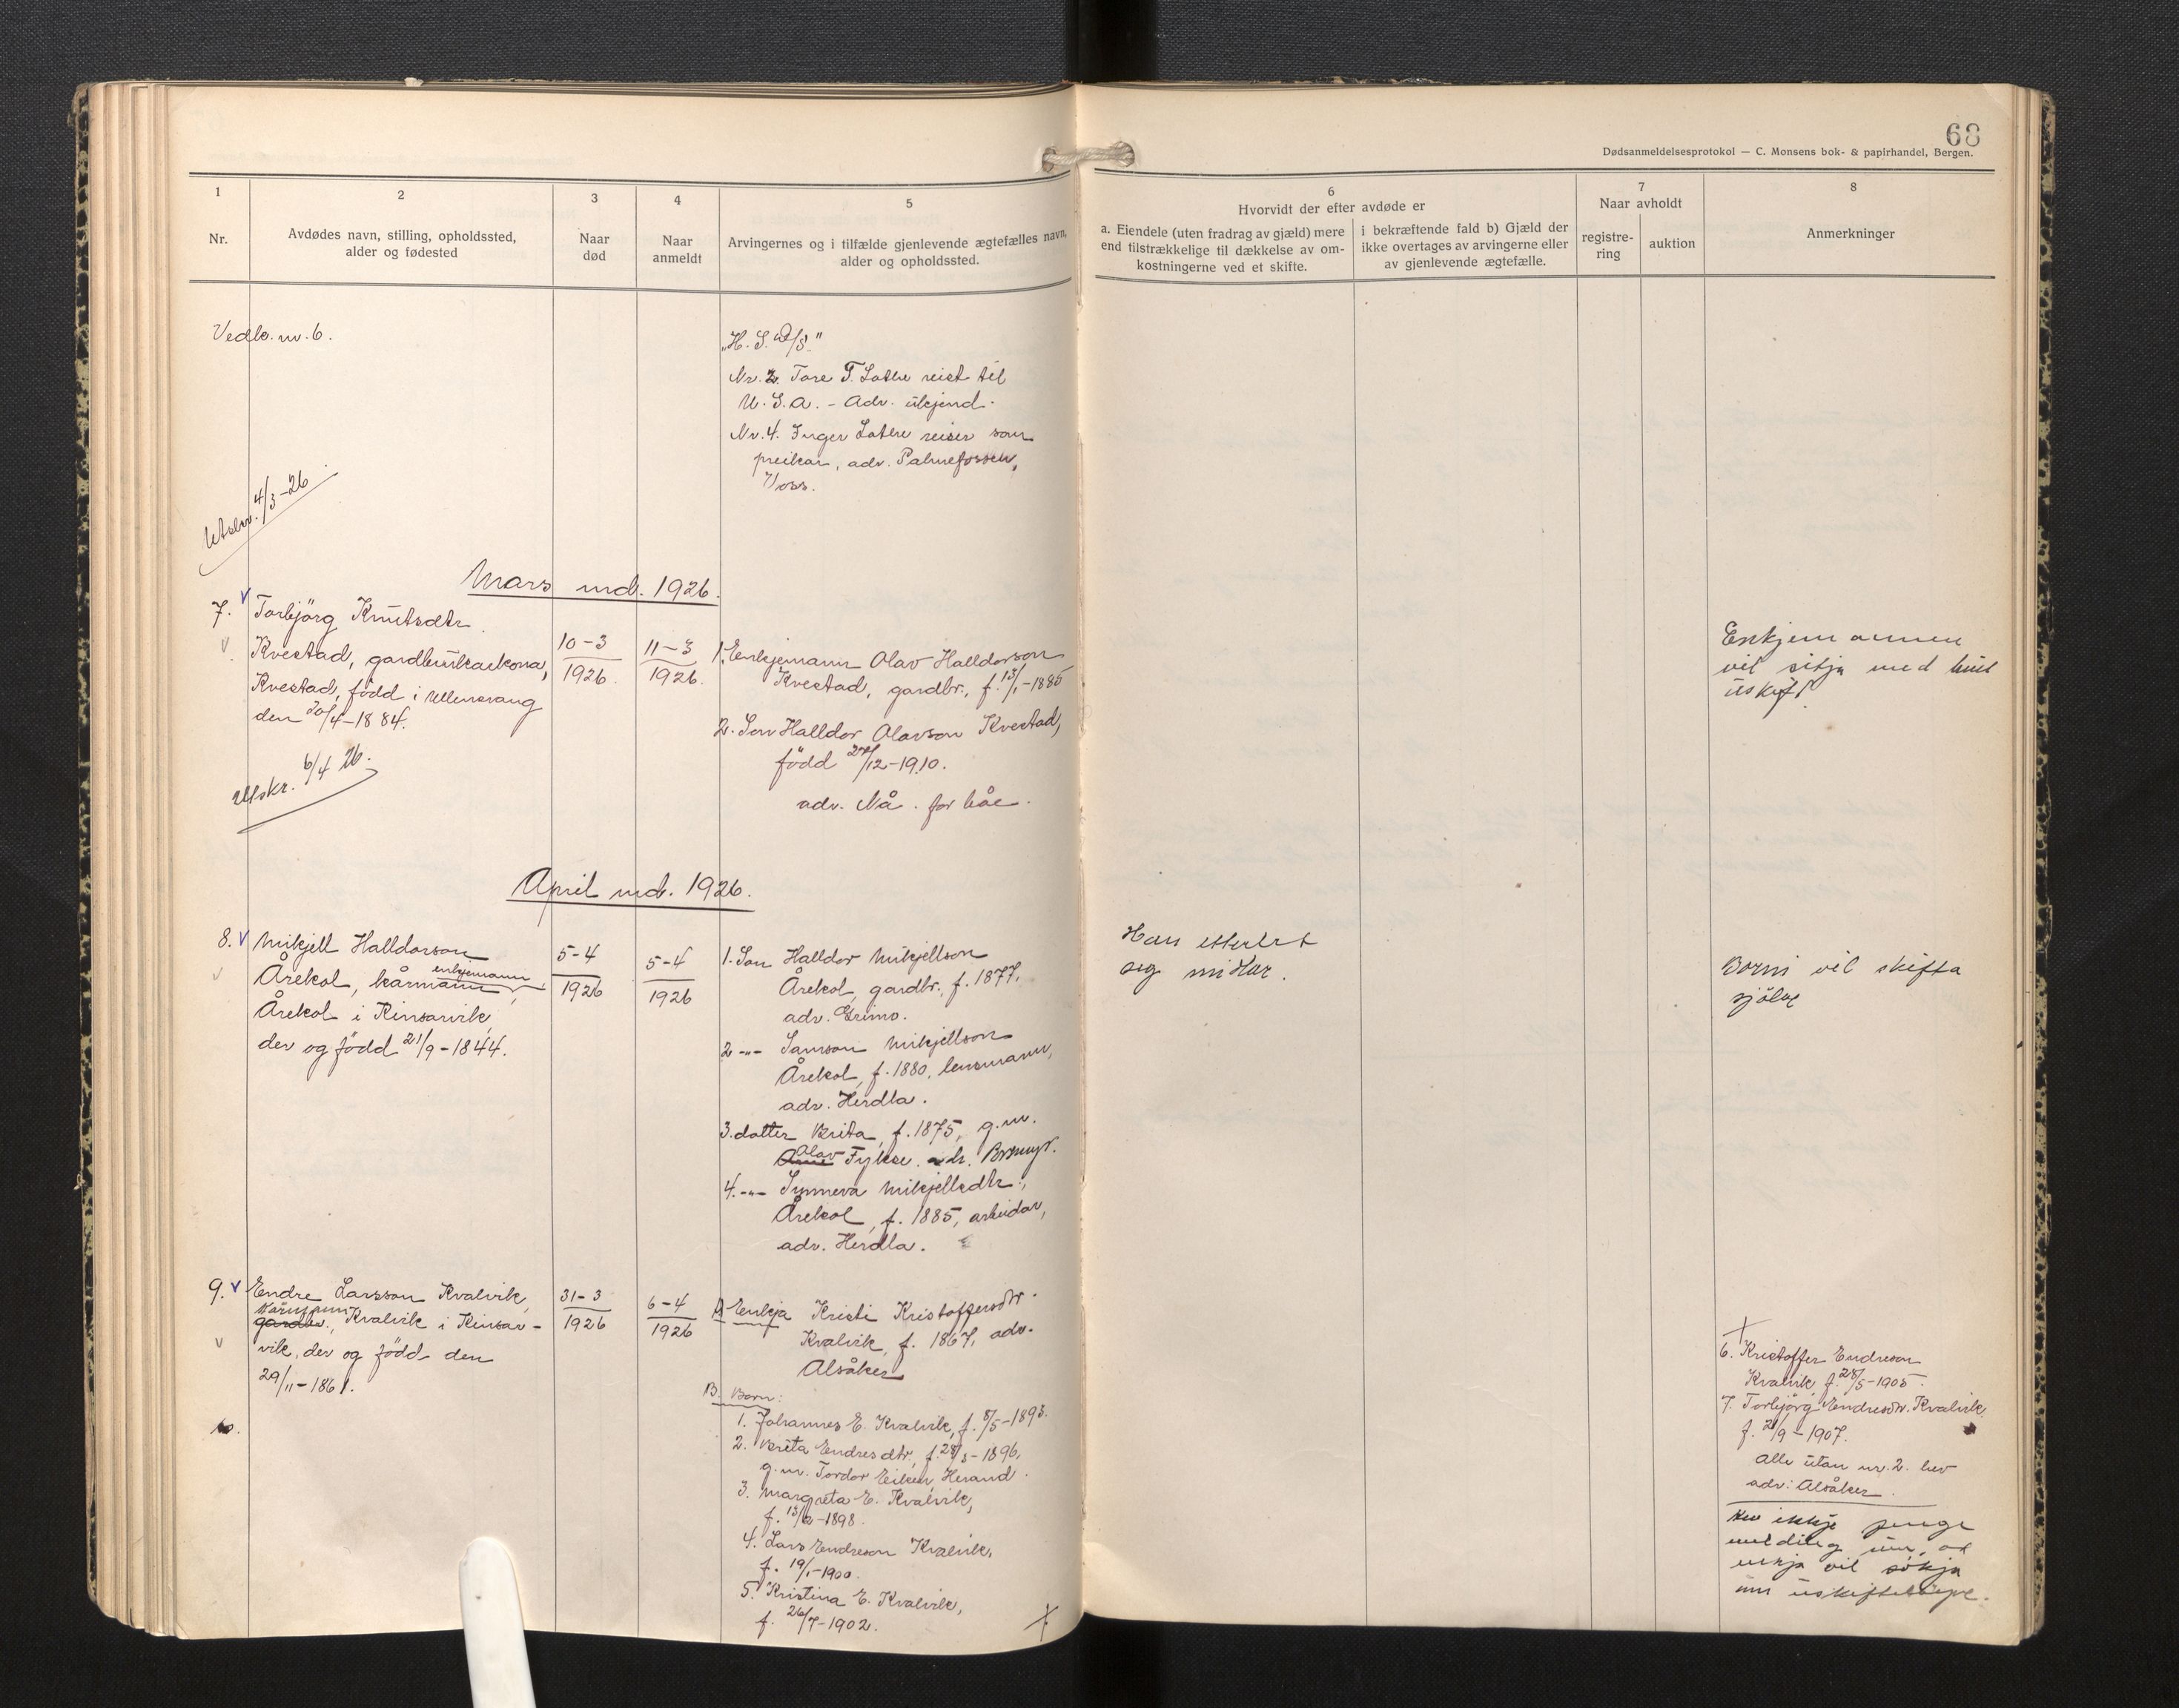 68
Dødsanmeldelsesprotokol — C. Monsens bok- & papirhandel, Bergen.
1
Nr.
2
Avdødes navn, stilling, opholdssted,
alder og fødested
3
Naar
død
4
Naar
anmeldt
5
Arvingernes og i tilfælde gjenlevende ægtefælles navn,
alder og opholdssted.
6
Hvorvidt der efter avdøde er
a. Eiendele (uten fradrag av gjæld) mere
end tilstrækkelige til dækkelse av om-
kostningerne ved et skifte.
i bekræftende fald b) Gjæld der
ikke overtages av arvingerne eller
av gjenlevende ægtefælle.
7
Naar avholdt
registre-
ring
auktion
8
Anmerkninger
Vedk. nr. 6.
Nr. 2. Tore T. Lothe reist til
U.S.A. - Adr. ukjend.
Nr. 4. Inger Lothe reiser som
preikar, adr. Palmefossen,
Voss.
Utskr. 4/3-26
Mars md. 1926.
7. Torbjörg Knutsdtr.
Kvestad, gardbrukarkona,
Kvestad, född i Ullensvang
den 30/4-1884.
10-3
1926.
11-3
1926.
1. Enkjemann Olav Halldorson
Kvestad, gardbr., f. 13/1-1885
2. Son Halldor Olavson Kvestad,
född /12-1910.
adv. Nå. for båe.
Enkjemannen
vil sitja med buet
uskift.
Utskr. 6/4 26.
April md. 1926.
8. Mikjell Halldorson
Årekol, kårmann, enkjemann
Årekol i Kinsarvik,
der og född 21/9-1844.
5-4
1926
5-4
1926
1. Son Halldor Mikjellson
Årekol, gardbr., f. 1877,
adr. Grimo.
2 -"- Samson Mikjellson
Årekol, f. 1880, lensmann,
adr. Herdla.
3. dotter Brita, f. 1875, g.m.
Olav Fykse. adr.
4. -"- Synneva Mikjellsdtr.,
Årekol, f. 1885, arbeidar,
adr. Herdla.
Han etterlet
seg midlar.
Borni vil skifta
sjölve
9. Endre Larsson Kvalvik,
kårmann
gardbr., Kvalvik i Kinsar-
vik, der og född den
29/11-1861.
31-3
1926
6-4
1926
A. Enkja Kristi Kristoffersdtr.
Kvalvik, f. 1867, adr.
Alsåker
B. Born:
1. Johannes E. Kvalvik, f. 8/5-1893.
2. Brita Endresdtr, f. 28/3-1896,
g.m. Tordor Eikem, Herand.
3. Margreta E. Kvalvik,
f. 13/2-1898.
4. Lars Endreson Kvalvik,
f. 19/1-1900.
5. Kristina E. Kvalvik,
f. 26/7-1902.
10.
6. Kristoffer Endreson
Kvalvik, f. 28/5-1905.
7. Torbjörg Endresdtr. Kvalvik
f. 21/9-1907.
Alle utan nr. 2. hev
adr: Alsåker.
Hev ikkje
melding um, at
enkja vil sökja
um